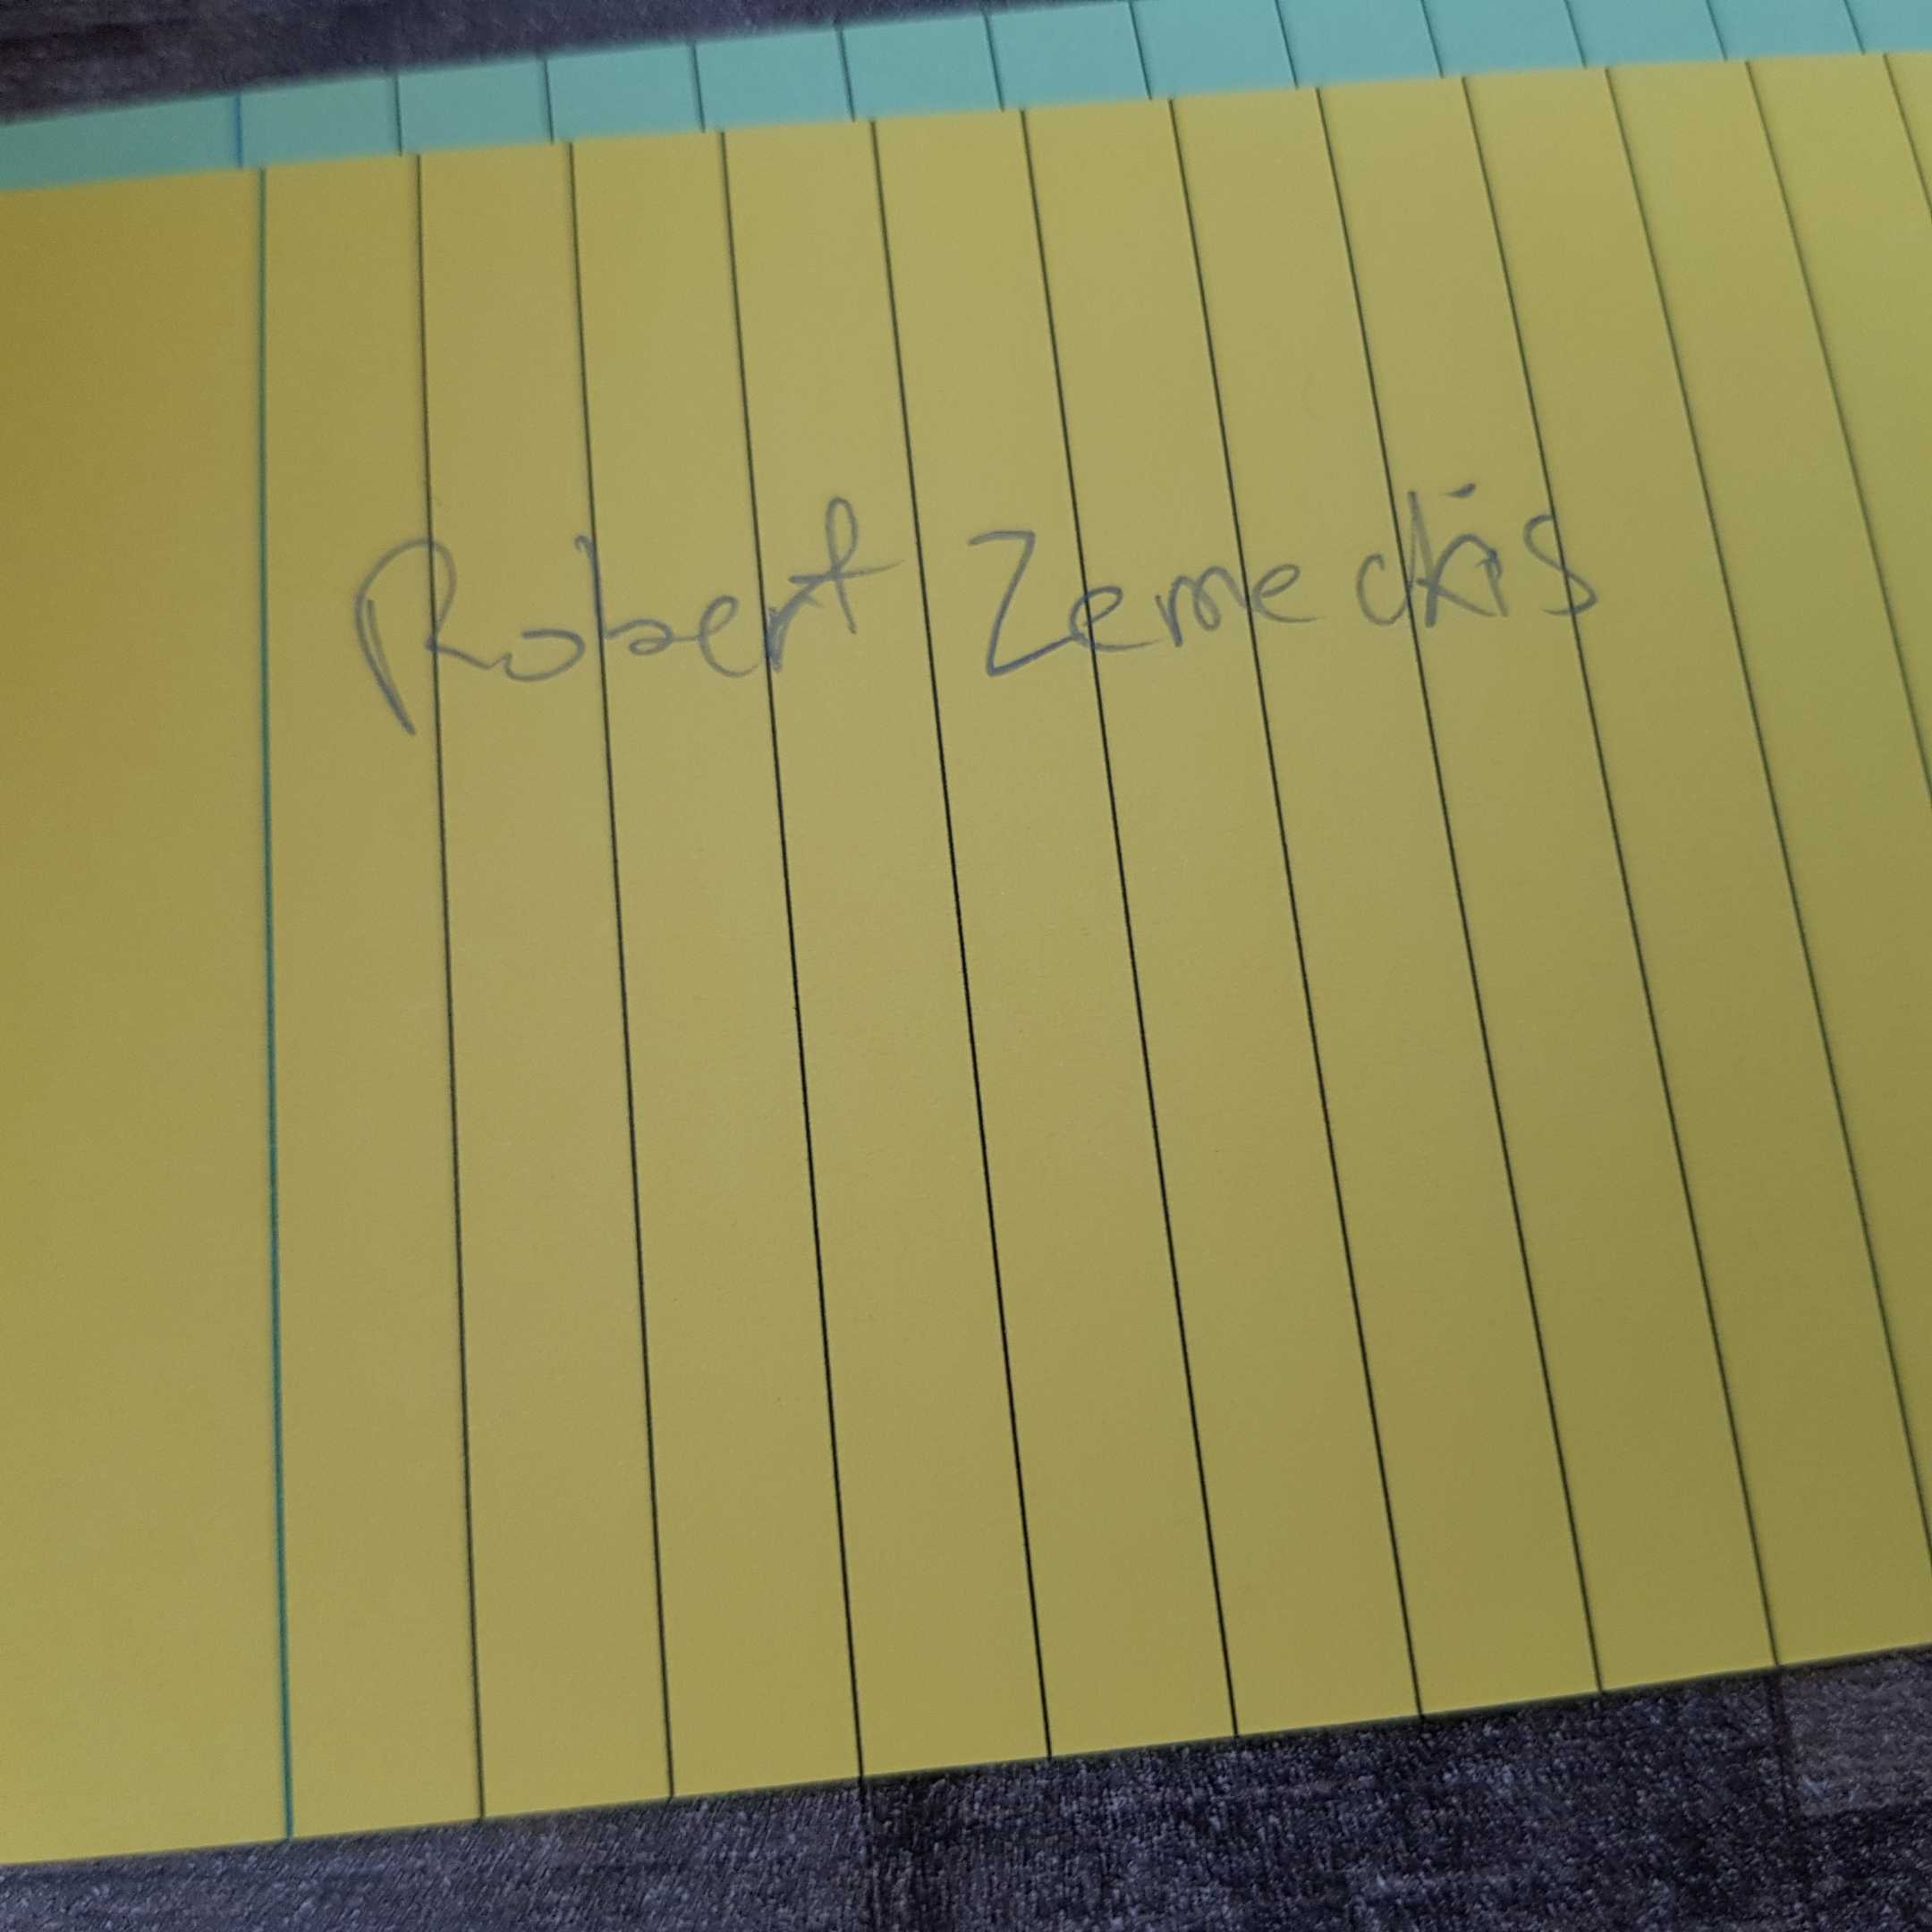 Robert Zemeckis